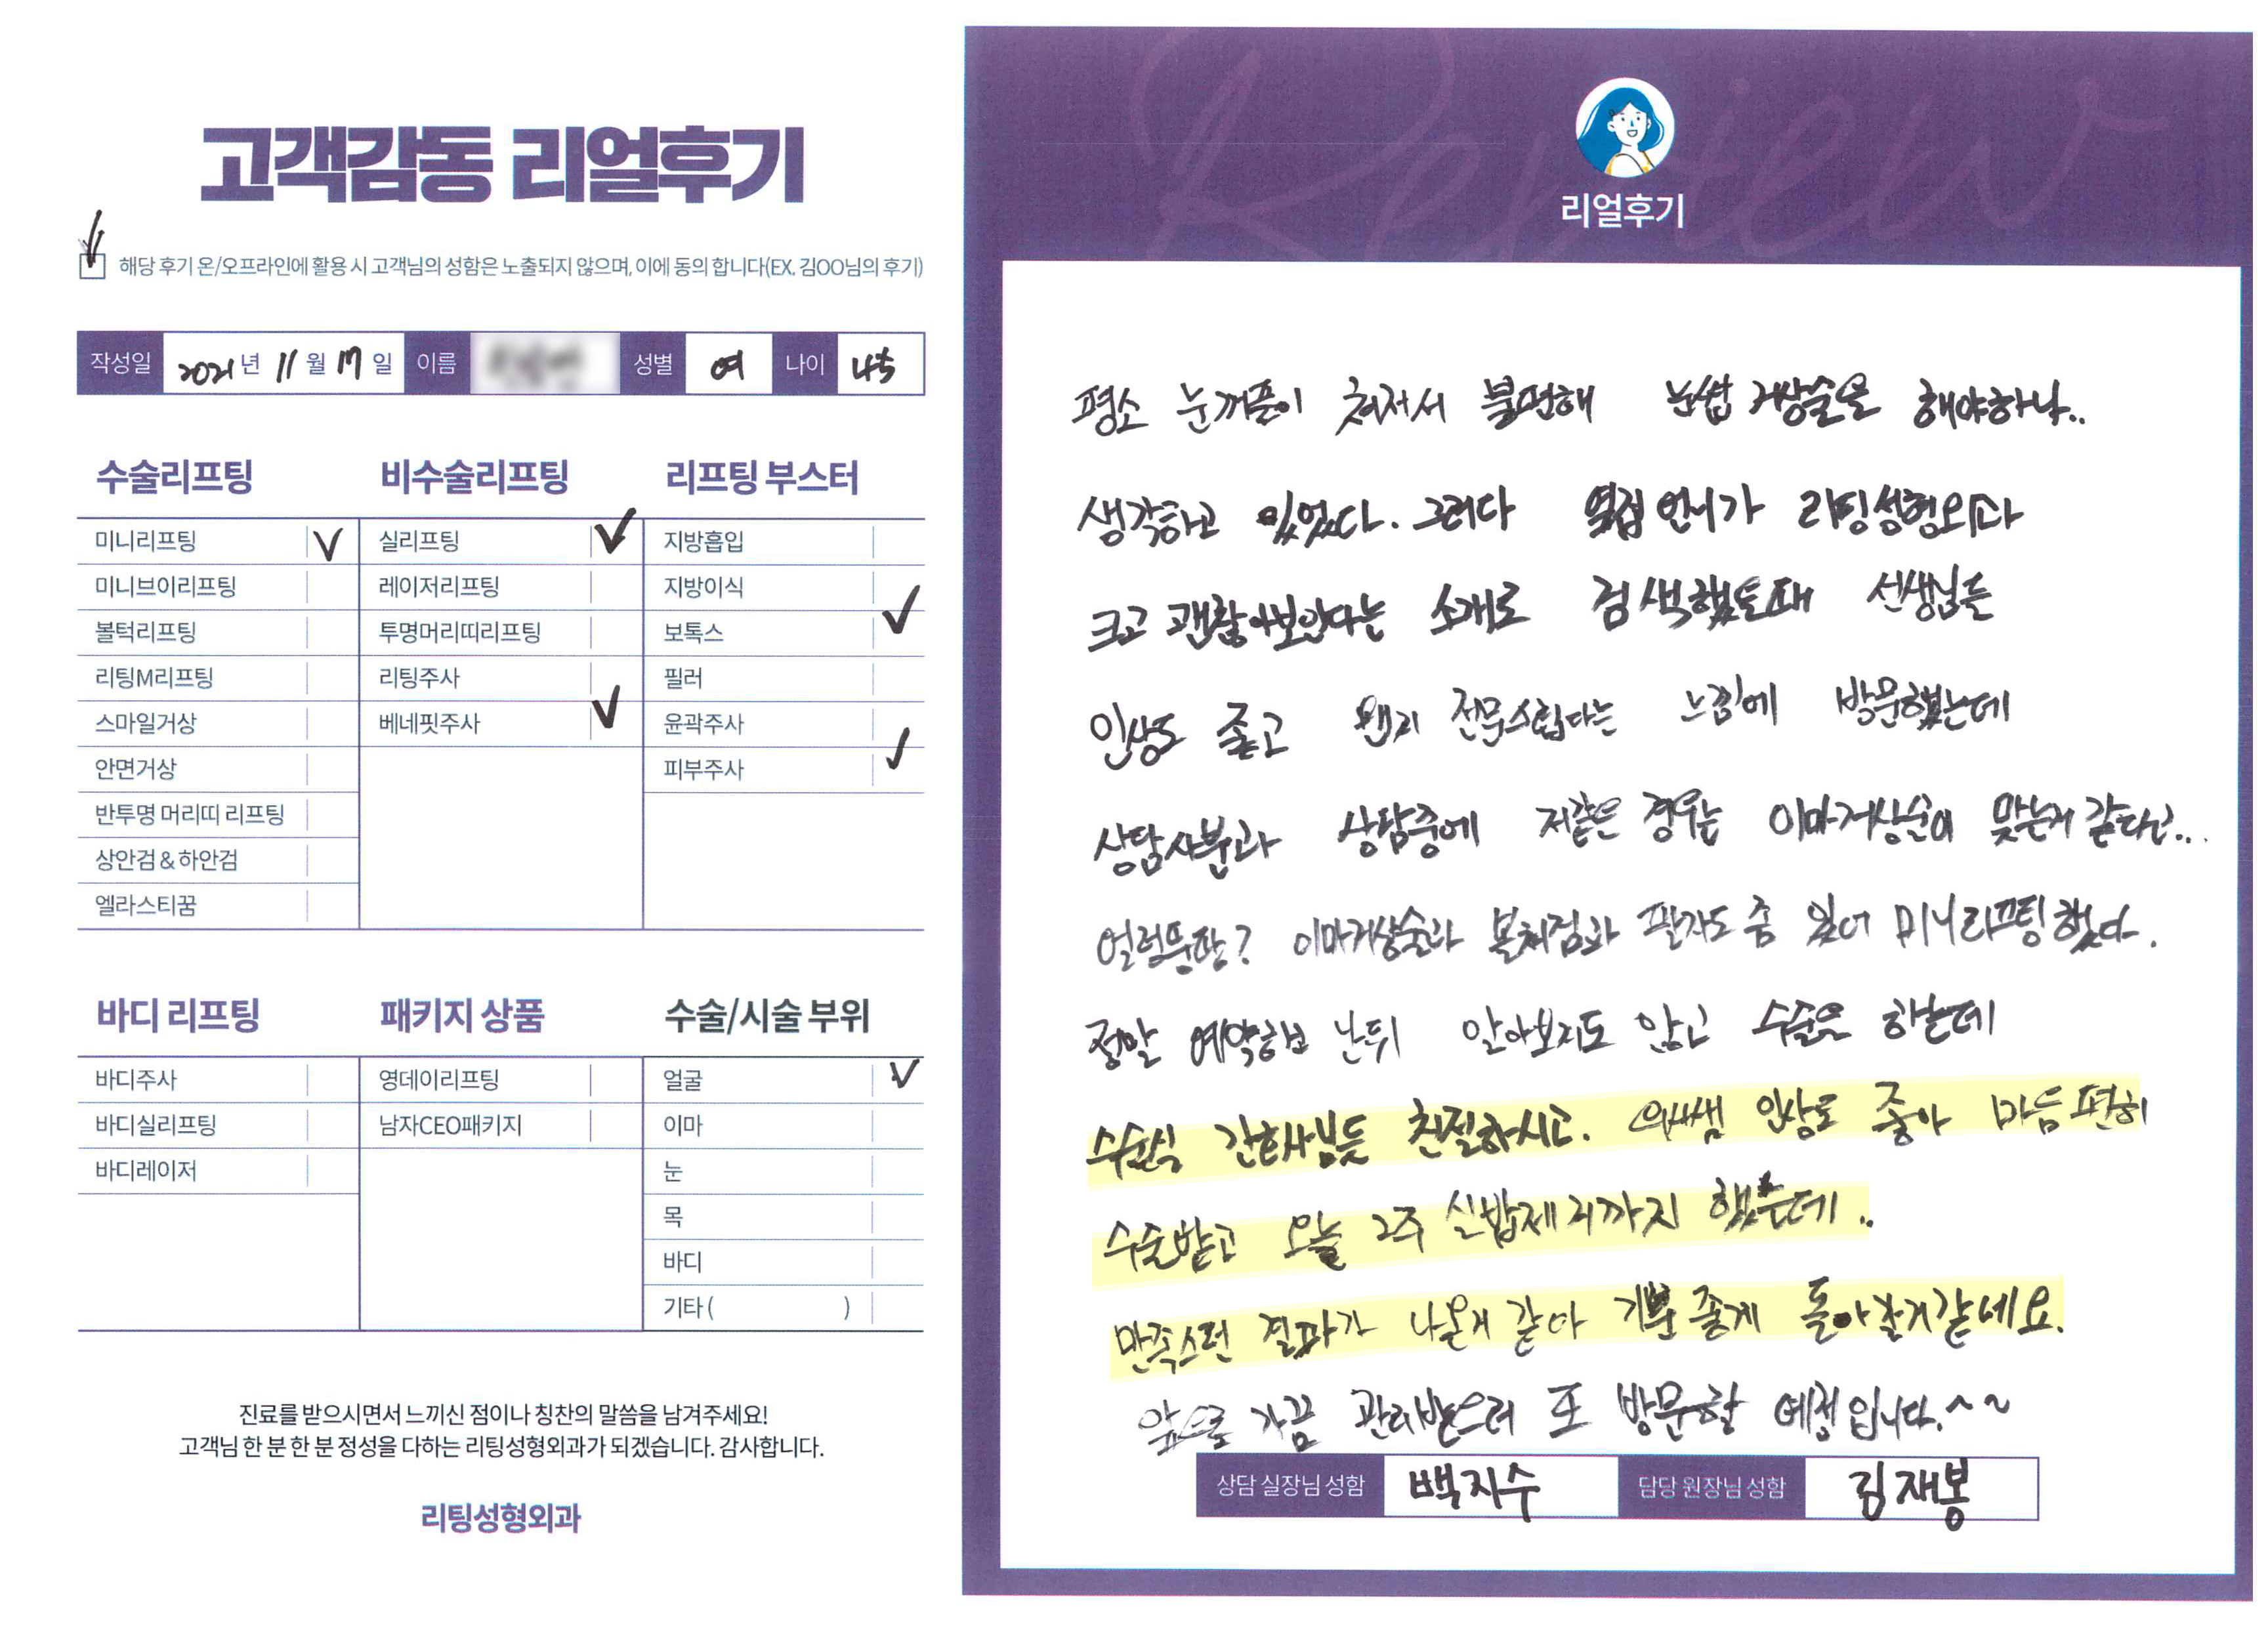 고객감동 리얼후기
해당 후기 온/오프라인에 활용 시 고객님의 성함은 노출되지 않으며, 이에 동의 합니다(EX. 김OO님의 후기)
작성일 2021년 11월 17일 이름 성별 여 나이 45
수술리프팅
미니리프팅 ✓
미니브이리프팅
볼턱리프팅
리팅M리프팅
스마일거상
안면거상
반투명 머리띠 리프팅
상안검&하안검
엘라스티꿈
비수술리프팅
실리프팅 ✓
레이저리프팅
투명머리띠리프팅
리팅주사
베네핏주사 ✓
리프팅 부스터
지방흡입
지방이식
보톡스 ✓
필러
윤곽주사
피부주사 ✓
바디 리프팅
바디주사
바디실리프팅
바디레이저
패키지 상품
영데이리프팅
남자CEO패키지
수술/시술 부위
얼굴 ✓
이마
눈
목
바디
기타 ( )
진료를 받으시면서 느끼신 점이나 칭찬의 말씀을 남겨주세요!
고객님 한 분 한 분 정성을 다하는 리팅성형외과가 되겠습니다. 감사합니다.
리팅성형외과
Review
리얼후기
평소 눈꺼풀이 쳐져서 불편해 눈썹 거상술을 해야하나..
생각하고 있었다. 그러다 옆집 언니가 리팅성형외과
크고 괜찮아보인다는 소개로 검색했을때 선생님들
인상도 좋고 왠지 전문스럽다는 느낌에 방문했는데
상담사분과 상담중에 저같은 경우는 이마거상술이 맞는거 같다고...
얼렁뚱땅? 이마거상술과 볼처짐과 팔자도 좀 있어 미니리프팅 했다.
정말 예약하고 난뒤 알아보지도 않고 수술은 하는데
수술식 간호사님듯 친절하시고. 의사쌤 인상도 좋아 마음 편히
수술받고 오늘 2주 실밥제거까지 했는데..
만족스런 결과가 나온거 같아 기분 좋게 돌아갈거같네요.
앞으로 가끔 관리받으러 또 방문할 예정입니다.^~
상담 실장님 성함 백지수 담당 원장님 성함 김재봉